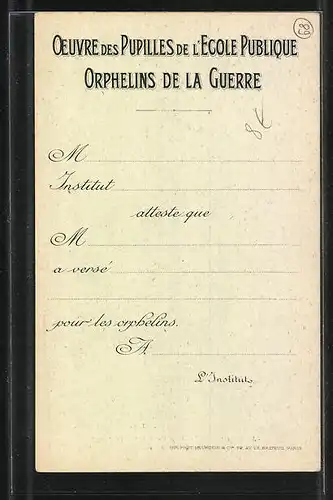 68
ŒUVRE DES PUPILLES DE L'ECOLE PUBLIQUE
ORPHELINS DE LA GUERRE
8€
M
Institut
atteste que
M
a versé
pour les orphelins.
A
L'Institut
PARIS